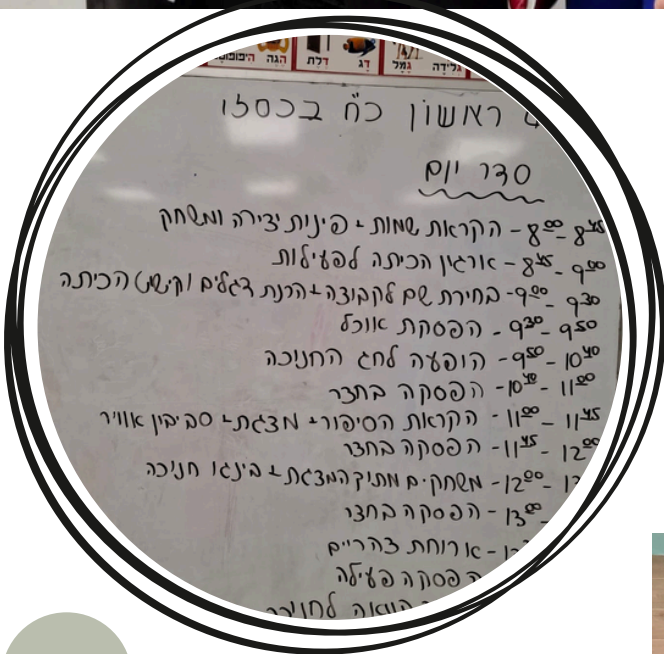 גלידה גמל דג דלת הגה היפופוטם
ראשון כ"ח בכסלו
סדר יום
8:00 - 8:45 - הקראת שמות + פינות יצירה ומשחק
8:45 - 9:00 - ארגון הכיתה לפעילות
9:00 - 9:30 - בחירת שם לקבוצה + הכנת דגלים וקישוט הכיתה
9:30 - 9:50 - הפסקת אוכל
9:50 - 10:40 - הופעה לחג החנוכה
10:40 - 11:00 - הפסקה בחצר
11:00 - 11:45 - הקראת הסיפור + מצגת + סביבון אוויר
11:45 - 12:00 - הפסקה בחצר
12:00 - משחקים מתוך המצגת + בינגו חנוכה
13:00 - הפסקה בחצר
ארוחת צהריים
הפסקה פעילה
לחנוכה